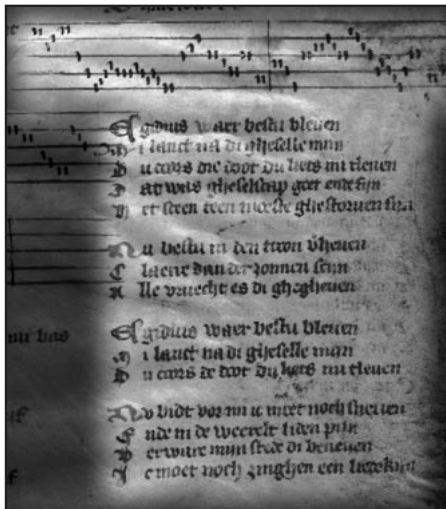 Egidius waer bestu bleuen
Mi lanct na di gheselle mijn
Du coors die doot du liets mi tleuen
Dat was gheselscap goet ende fijn
Het sceen teen moeste ghestoruen sijn
Nu bestu in den troon verheuen
Claerre dan der zonnen scijn
Alle vruecht es di ghegheuen
Egidius waer bestu bleuen
Mi lanct na di gheselle mijn
Du coors de doot du liets mi tleuen
Nv bidt vor mi ic moet noch sneuen
Ende in de weerelt liden pijn
Verware mijn stede di beneuen
Ic moet noch zinghen een liedekijn